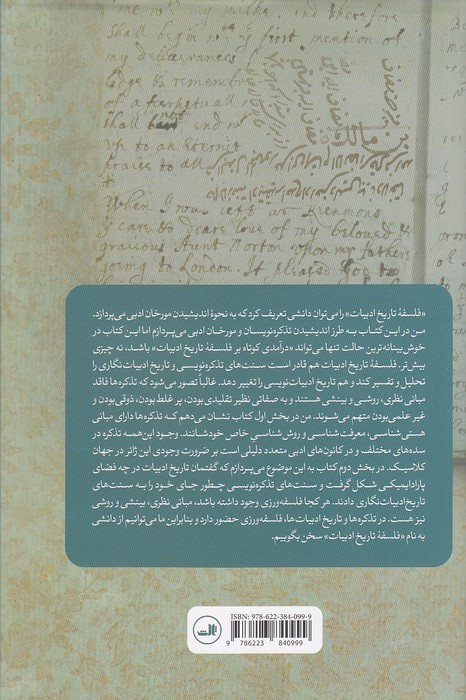 me not my milke, and therefore
shall begin
first mention of
my deliverances
& remember
of a perpetuall
shall
end
up to an Eternit
praise to all
When I was left at Richmons
care & deare love of my beloved &
gracious Aunt Norton upon my fathers
going to London. It pleased God to
«فلسفهٔ تاریخ ادبیات» را می‌توان دانشی تعریف کرد که به نحوهٔ اندیشیدن مورخان ادبی می‌پردازد.
من در این کتاب به طرز اندیشیدن تذکره‌نویسان و مورخان ادبی می‌پردازم اما این کتاب در
خوش‌بینانه‌ترین حالت تنها می‌تواند «درآمدی کوتاه بر فلسفهٔ تاریخ ادبیات» باشد، نه چیزی
بیش‌تر. فلسفهٔ تاریخ ادبیات هم قادر است سنت‌های تذکره‌نویسی و تاریخ ادبیات نگاری را
تحلیل و تفسیر کند و هم تاریخ ادبیات‌نویسی را تغییر دهد. غالباً تصور می‌شود که تذکره‌ها فاقد
مبانی نظری، روشی و بینشی هستند و به صفاتی نظیر تقلیدی‌بودن، پر غلط‌بودن، ذوقی‌بودن و
غیر علمی‌بودن متهم می‌شوند. من در بخش اول کتاب نشان می‌دهم که تذکره‌ها دارای مبانی
هستی‌شناسی، معرفت شناسی و روش شناسی خاص خودشانند. وجود این‌همه تذکره در
سده‌های مختلف و در کانون‌های ادبی متعدد دلیلی است بر ضرورت وجودی این ژانر در جهان
کلاسیک. در بخش دوم کتاب به این موضوع می‌پردازم که گفتمان تاریخ ادبیات در چه فضای
پارادایمیکی شکل گرفت و سنت‌های تذکره‌نویسی چطور جای خود را به سنت‌های
تاریخ ادبیات‌نگاری دادند. هر کجا فلسفه‌ورزی وجود داشته باشد، مبانی نظری، بینشی و روشی
نیز هست. در تذکره‌ها و تاریخ ادبیات‌ها، فلسفه‌ورزی حضور دارد و بنابراین ما می‌توانیم از دانشی
به نام «فلسفهٔ تاریخ ادبیات» سخن بگوییم.
ISBN: 978-622-384-099-9
9 786223 840999
ثالث